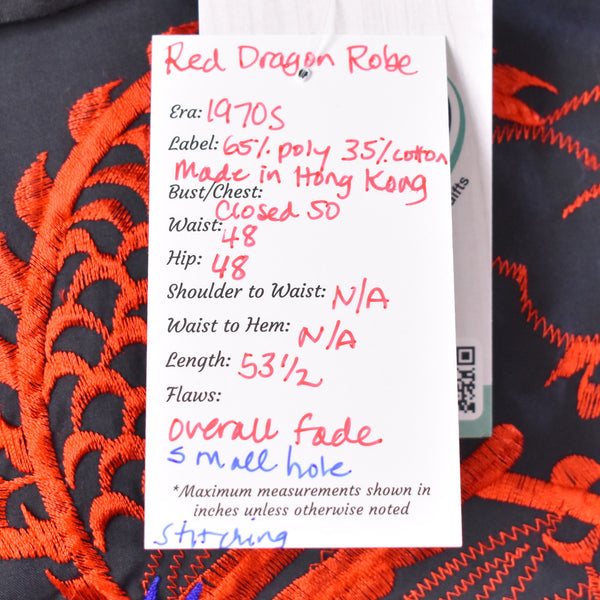 Red Dragon Robe
Era: 1970s
Label: 65% poly 35% cotton
Made in Hong Kong
Bust/Chest:
Closed 50
Waist:
48
Hip: 48
Shoulder to Waist: N/A
Waist to Hem: N/A
Length: 53 1/2
Flaws:
overall fade
small hole
*Maximum measurements shown in
inches unless otherwise noted
stitching